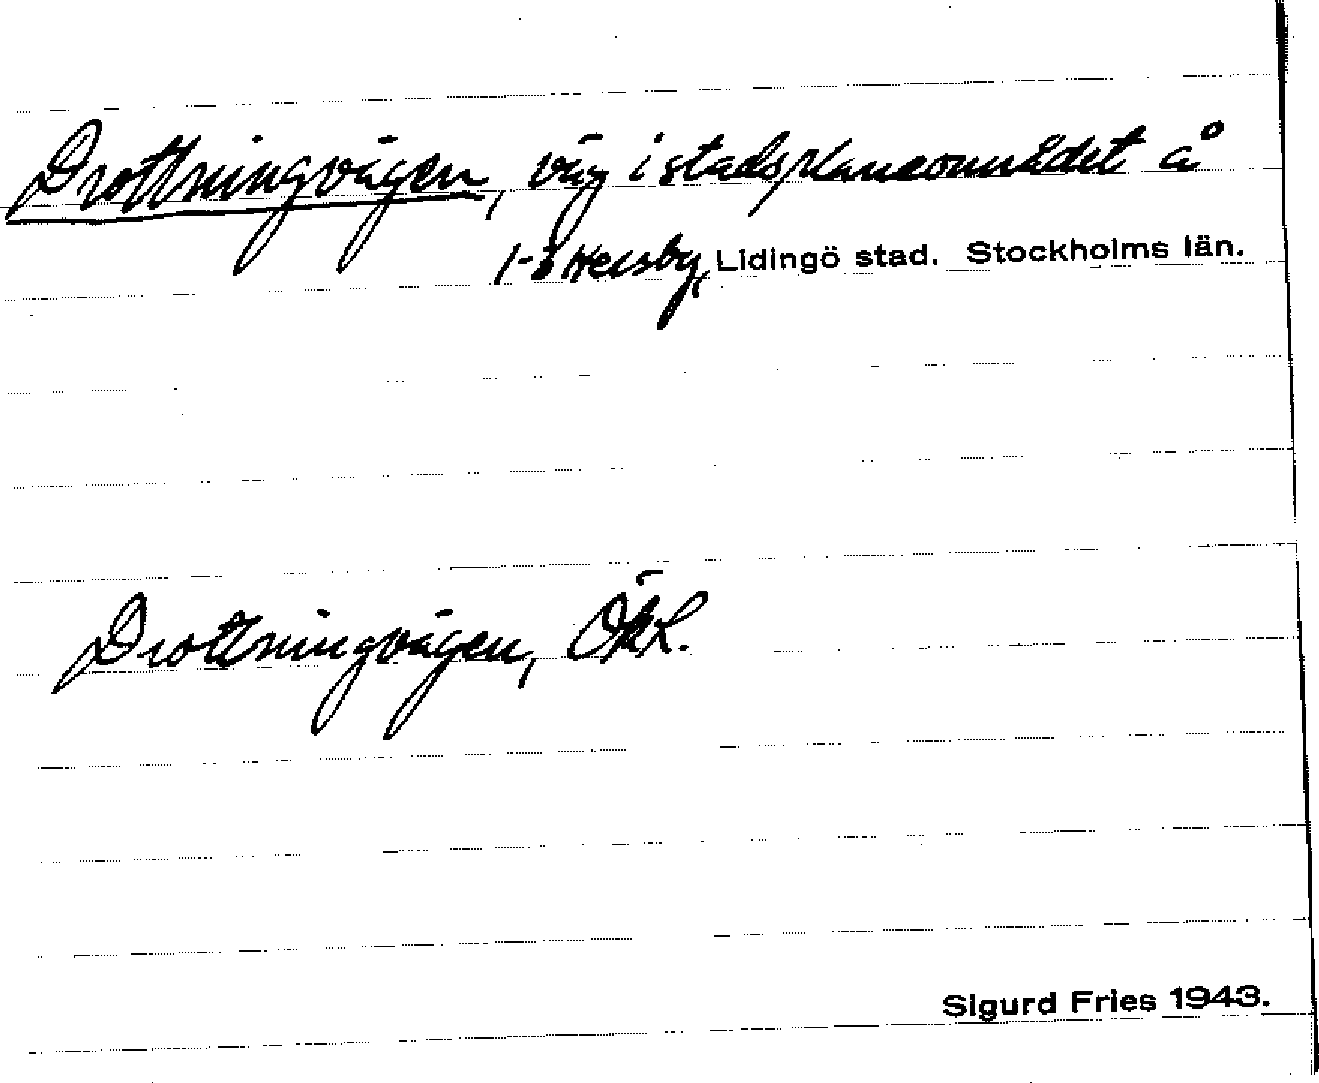 Drottningvägen, väg i stadsplaneområdet å
1-3 Hersby, Lidingö stad. Stockholms län.
Drottningvägen, ÖKL.
Sigurd Fries 1943.